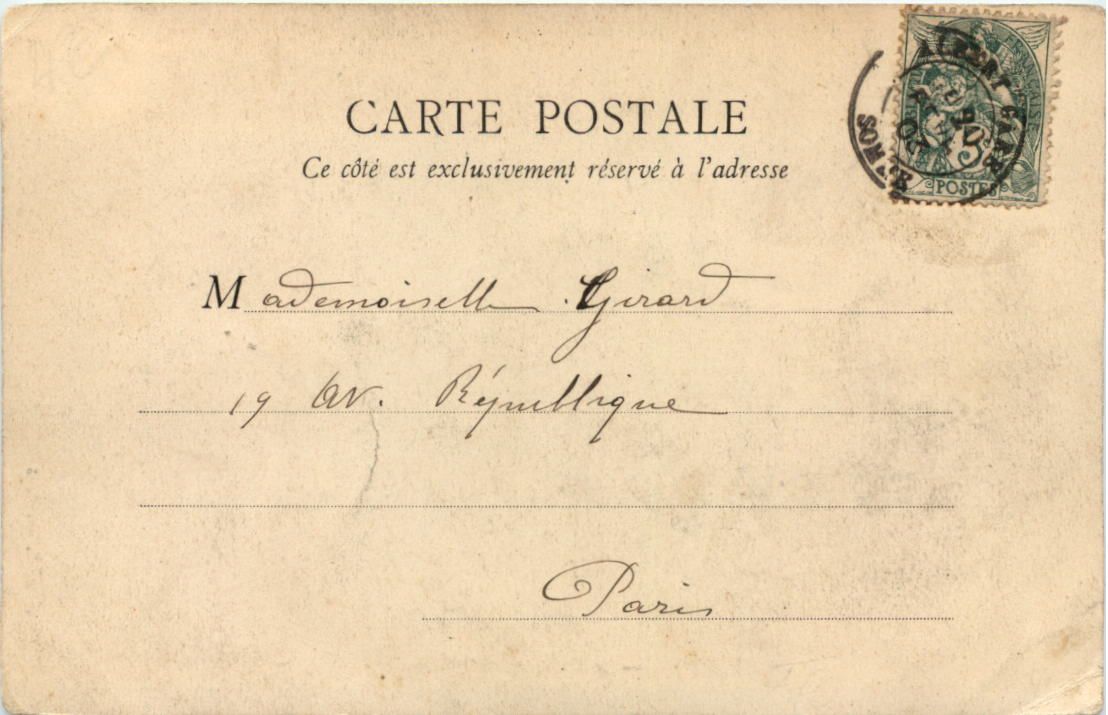 CARTE POSTALE
Ce côté est exclusivement réservé à l'adresse
ALBERT GARE
SOMME
5
POSTES
Mademoiselle Girard
19 Av. République
Paris